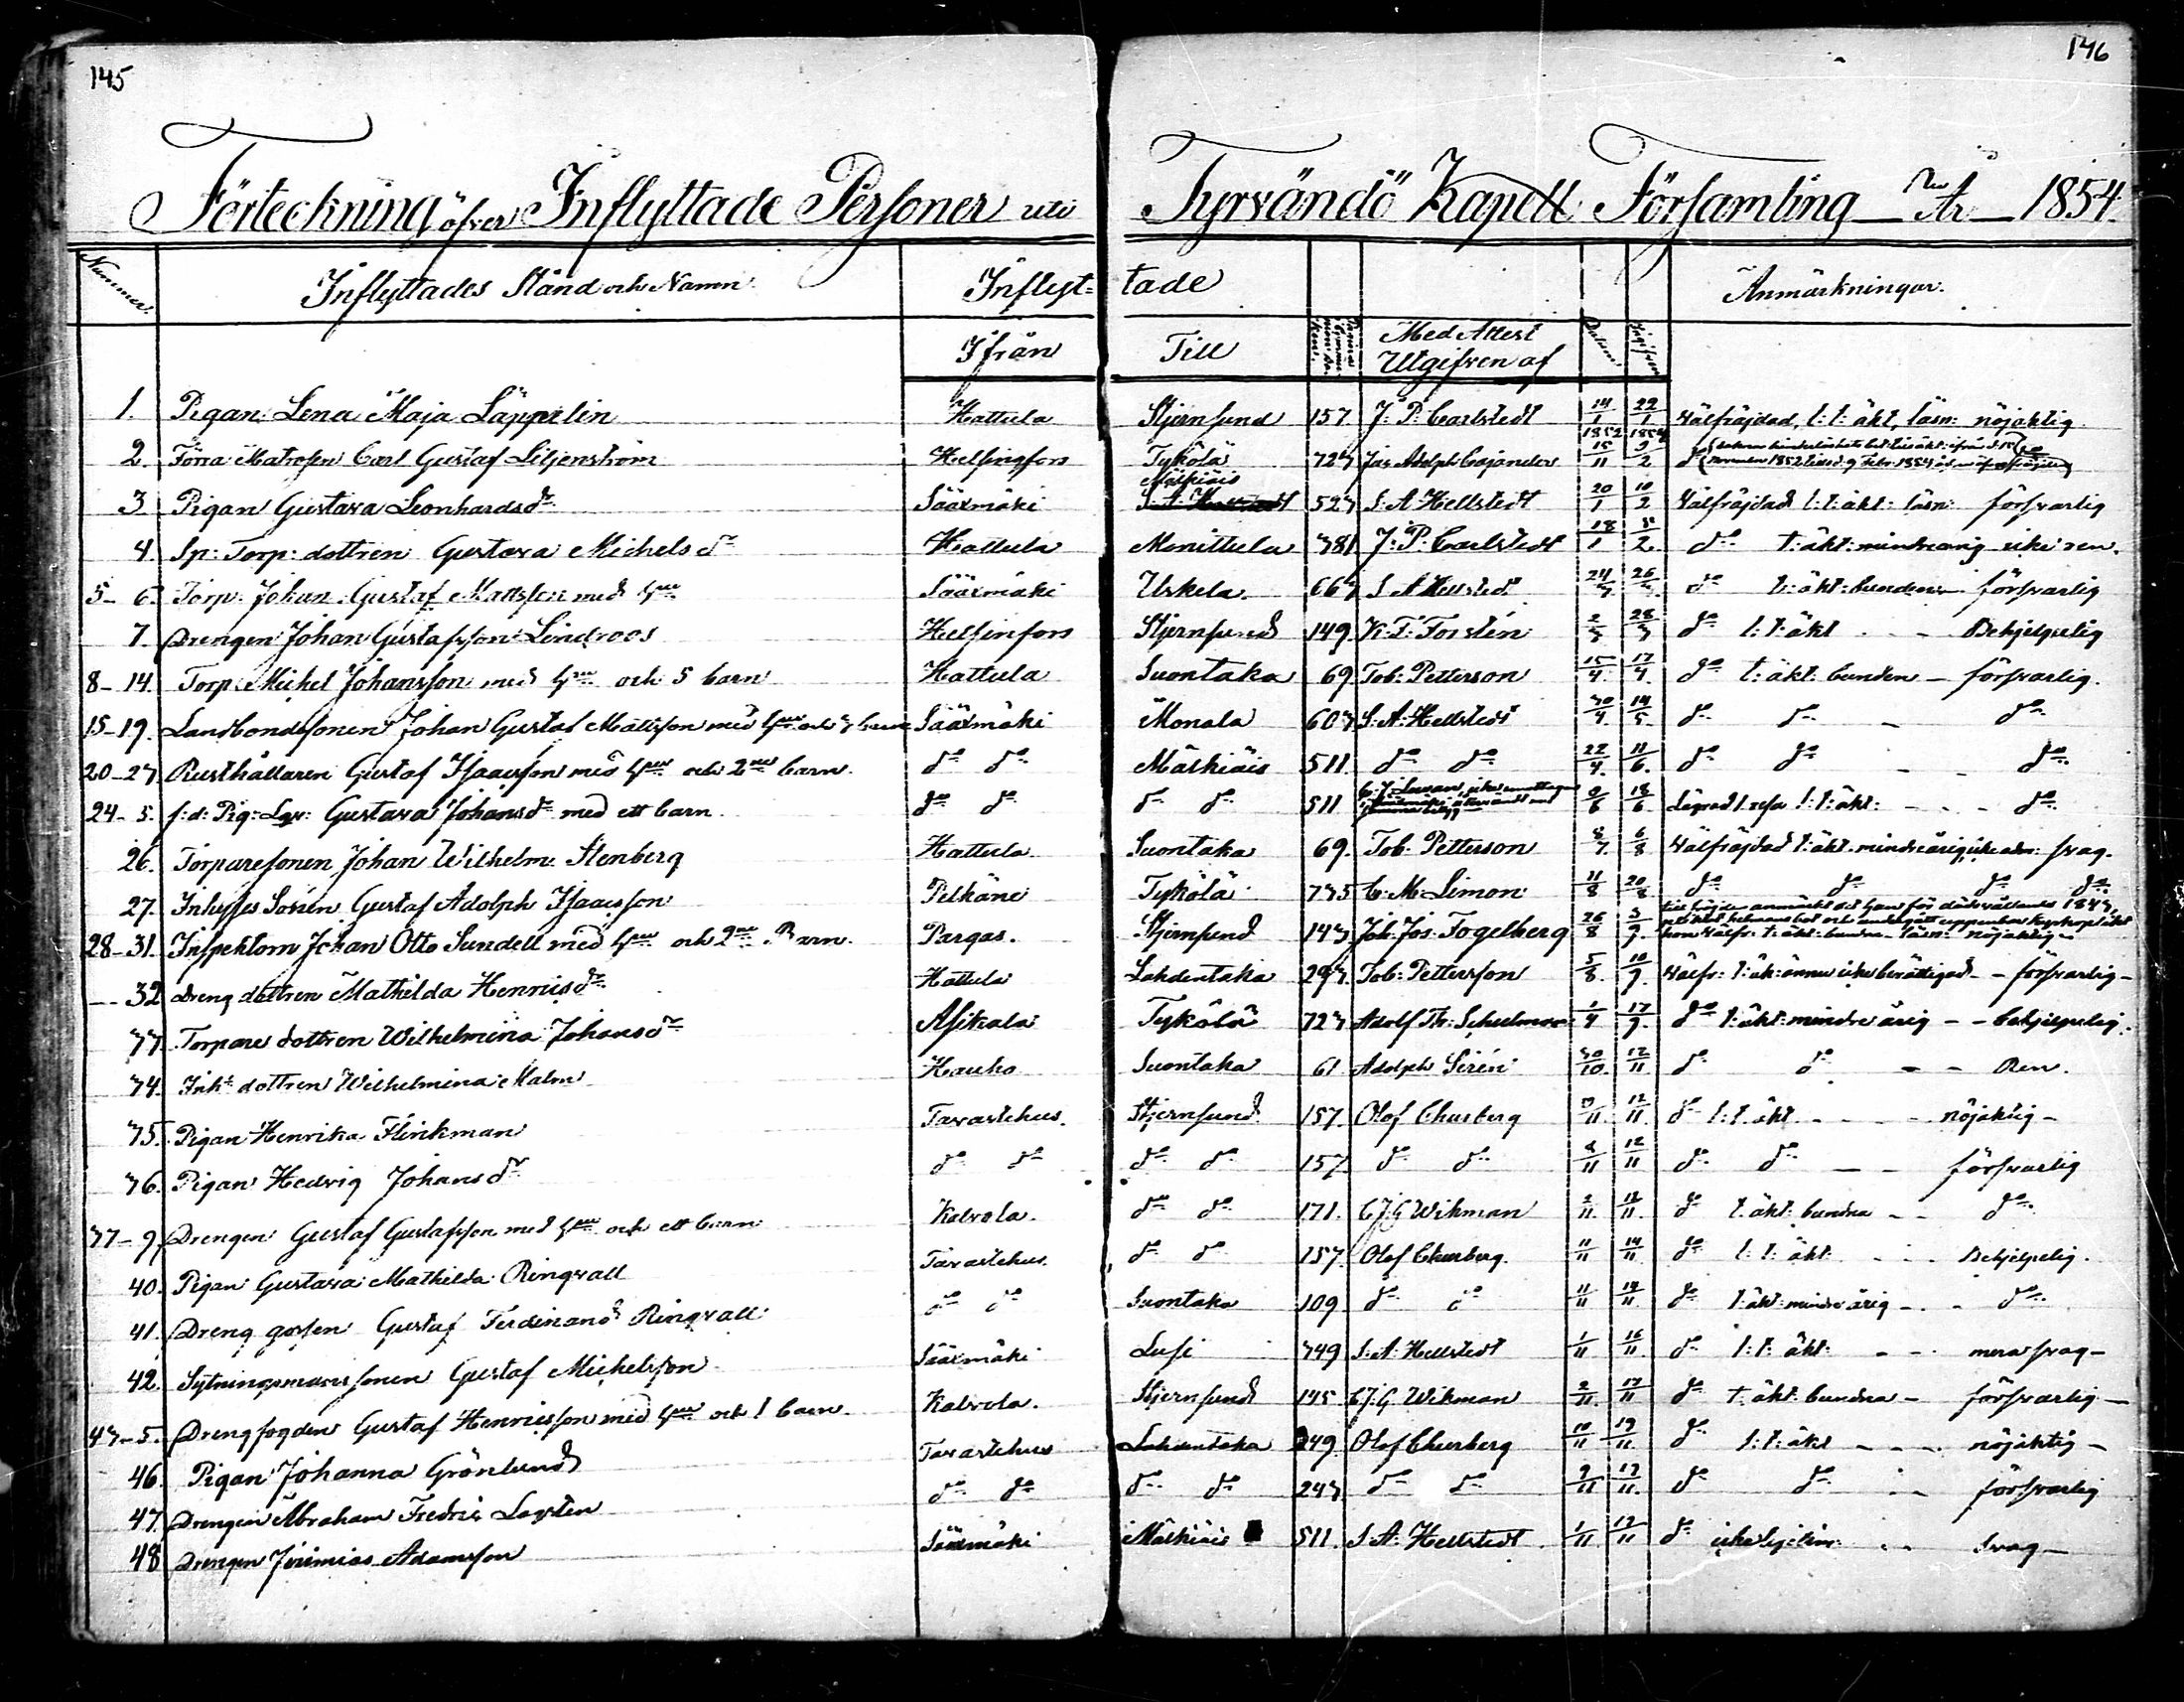 145
146
Förteckning öfver Inflyttade Personer uti Tyrvändö Kapell Församling År 1854.
Nummer. Inflyttades Stånd och Namn Inflyt- tade Anmärkningar.
Ifrån Till Med Attest Utgifven af Datum
1. Pigan Lena Maja Läppelin Hattula Stjernsund 157. J: P: Carlstedt 14/1 22/1 Välfräjdad, l: t: äkt, läsn: nöjaktig
2. Förra Matrosen Carl Gustaf Liljenström Helsingfors Tykölä 323 Jas Adolph Cajander 1852 15/11 1854 9/2 do
3. Pigan Gustava Leonhardsdr Sääxmäki Mälkiäis 523 S. A Hellstedt 20/1 10/2 Välfräjdad l: t: äkt: läsn: försvarlig
4. Sp: Torp: dottren Gustava Michelsdr Hattula Monittula 381 J: P: Carlstedt 18/1 /2. do t: äkt: mindreårig icke ren.
5-6. Torp: Johan Gustaf Mattsson med hu Sääxmäki Uskela. 663 S A Hellstedt 24/3 26/3 do t: äkt: bunden försvarlig
7. Drengen Johan Gustafsson Lindroos Helsinfors Stjernsund 149. K: T: Forstén 2/3 28/3 do l: t: äkt - - Behjelpelig
8-14. Torp: Michel Johansson med hu och 5 barn Hattula Suontaka 69. Tob: Petterson 15/4. 17/4 do t: äkt: bunden - försvarlig.
15-19. Landbondesonen Johan Gustaf Mattsson med hu och 3 barn Sääxmäki Monala 603 S: A: Hellstedt 30/4 14/5. do do - do
20-23. Rusthållaren Gustaf Isaacsson med hu och 2ne barn. do do Mälkiäis 511. do do 22/4. 11/6. do do - - do
24-5. f: d: Pig: Gustava Johansdr med ett barn. do do do do 511 /6 18/6. l: t: äkt: - - - do
26. Torparesonen Johan Wilhelm Stenberg Hattula. Suontaka 69. Tob: Petterson 8/7. 6/8 Välfräjdad t: äkt. mindreårig icke adm: svag.
27. Inhyses Sonen Gustaf Adolph Isaacsson Pelkäne Tykölä 335 C: M: Limon 11/8 20/8. do do do do
28-31. Inspektorn Johan Otto Sundell med hu och 2ne Barn. Pargas. Stjernsund 143 Joh: Jos: Fogelberg 26/8 3/9. hon välfr: t: äkt: bundna - läsn: nöjaktig -
-- 32 Dreng dottren Mathilda Henricsdr Hattula Lahdentaka 293 Tob: Pettersson 5/8. 10/9. Välfr: t: äk: ännu icke berättigad - - försvarlig -
33. Torpare dottren Wilhelmina Johansdr Asikala Tykölä 323 Adolf Th: Schulman 1/4 17/9. do t: äkt: mindre årig - - behjelpelig.
34. Inhs dottren Wilhelmina Malm Hauho Suontaka 61 Adolph Sirén 30/10. 12/11 do do - - Ren.
35. Pigan Henrika Flinkman Tavastehus. Stjernsund 157. Olof Churberg /11. 12/11. do l: t. äkt - - - nöjaktig -
36. Pigan Hedvig Johansdr do do do do 157. do do 8/11 12/11 do do - - försvarlig
37-9. Drengen Gustaf Gustafsson med hu och ett barn Kalvola. do do 171. C: J: G Wikman 2/11. 12/11. do t: äkt: bundna - - do
40. Pigan Gustava Mathilda Ringvall Tavastehus. do do 157. Olof Churberg. 11/11 14/11. do l: t: äkt - - Behjelpelig.
41. Dreng gossen Gustaf Ferdinand Ringvall do do Suontaka 109. do do 11/11 14/11. do t: äkt: mindre årig - - do
42. Sytningsmans sonen Gustaf Michelsson Sääxmäki Lusi 349 S: A: Hellstedt 1/11 16/11. do l: t: äkt: - - mera svag -
43-5. Drengfogden Gustaf Henricsson med hu och 1 barn. Kalvola. Stjernsund 145 C: J: G Wikman 2/11. 17/11 do t: äkt: bundna - försvarlig -
46. Pigan Johanna Grönlund Tavastehus Lahdentaka 249. Olof Churberg 10/11 19/11. do l: t: äkt - - - nöjaktig -
47. Drengen Abraham Fredric do do do do 243. do do 9/11 19/11. do do - - försvarlig
48 Drengen Jeremias Adamsson Sääxmäki Mälkiäis 511. S: A: Hellstedt. 1/11 19/11 do icke - - Svag -